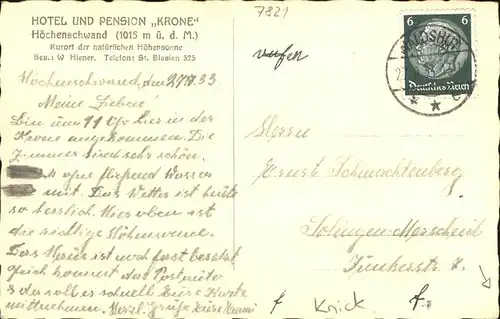 HOTEL UND PENSION „KRONE"
Höchenschwand (1015 m ü. d. M.)
Kurort der natürlichen Höhensonne
Bes.: W Hiener. Telefon: St. Blasien 325
7821
6 6
Deutsches Reich
Höchenschwand, den
Meine Lieben!
Bin um 11 Uhr hier in der
Krone angekommen. Die
Zimmer sind sehr schön.
fließend Wasser
mit. Das Wetter ist heute
so herrlich. Hier oben ist
die richtige Höhensonne.
Das Haus ist noch fast besetzt
gleich kommt das Postauto
& das soll es schnell diese Karte
mitnehmen. Herzl. Grüße
Herrn
Ernst Schmachtenberg
Solingen-Merscheid
Junkerstr. 7.
Knick